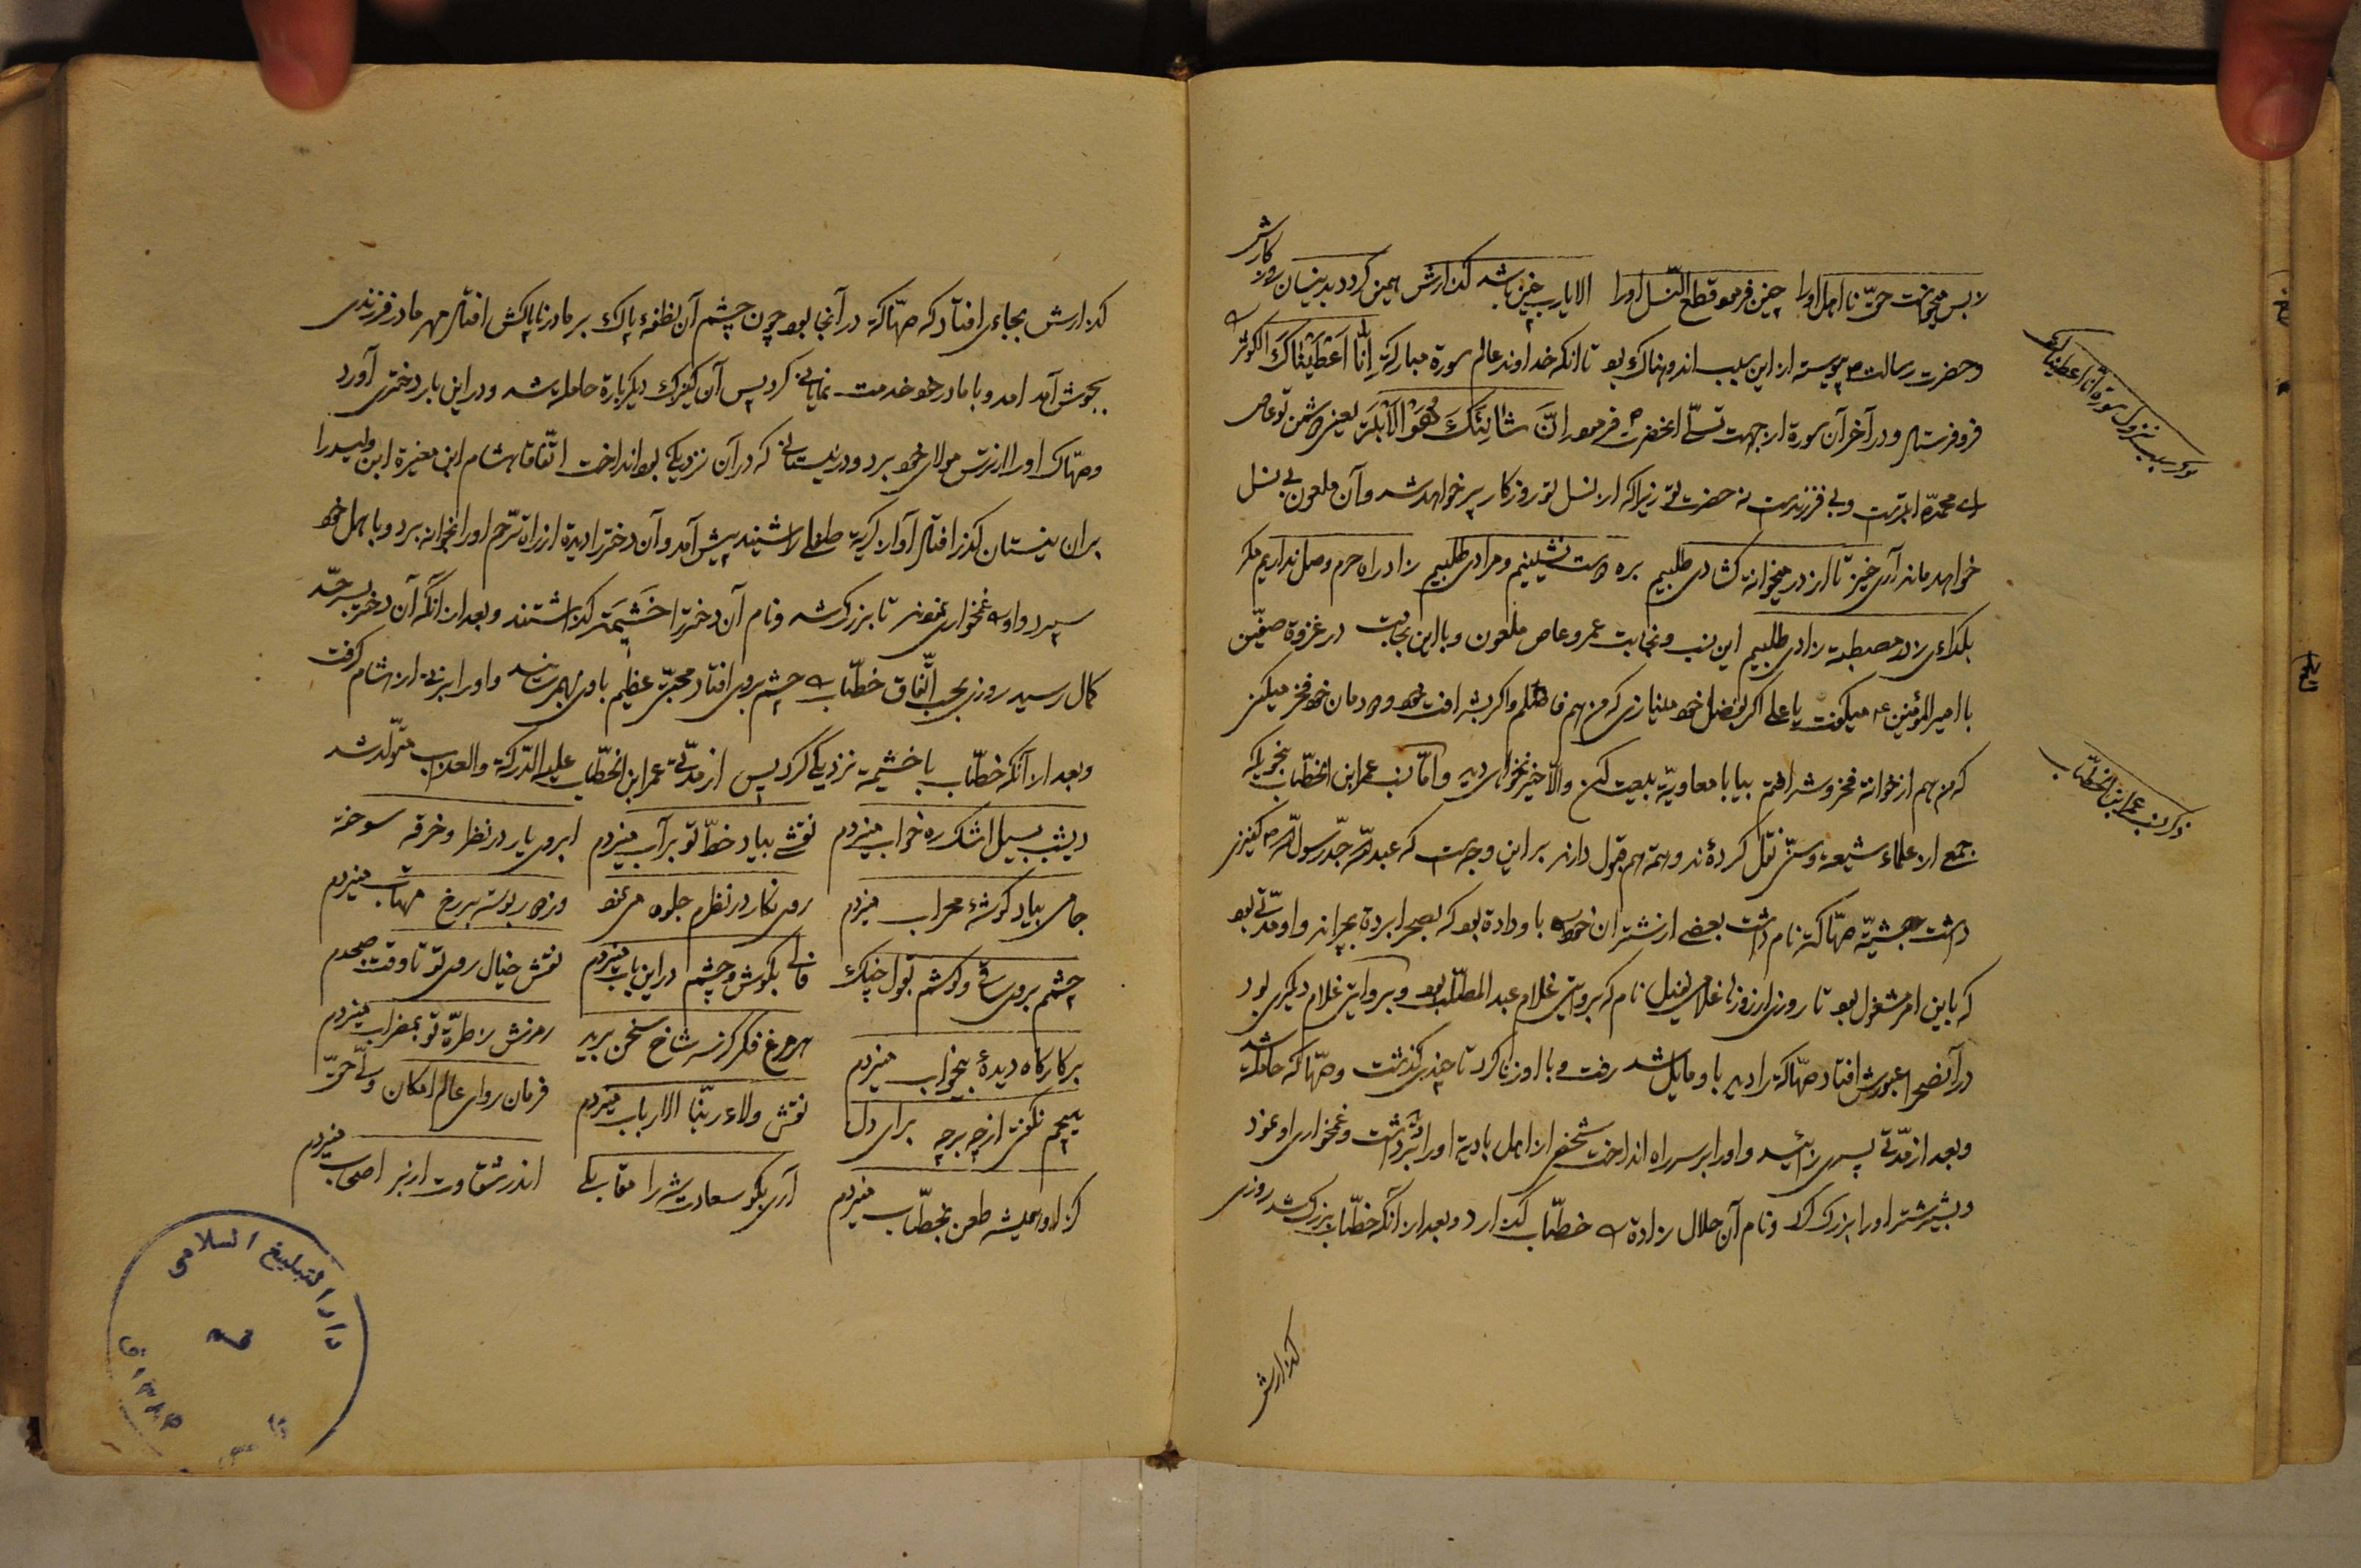 ز بس میخواست حق نااهل او را چنین فرمود قطع النسل او را الا یا رب چنین باشد گذارش همین گردد بدینسان روزگارش
و حضرت رسالت ص پیوسته از این سبب اندوهناک بود تا آنکه خداوند عالم سورهٔ مبارکه اِنّا اَعْطَیْناکَ الکَوثَر
فرو فرستاد و در آخر آن سوره از جهت تسلّی آنحضرت ص فرمود اِنَّ شانِئَکَ هُوَ الاَبْتَر یعنی دشمن تو عاص
ای محمد ص ابترست و بی فرزندست نه حضرت تو زیرا که از نسل تو روزگار پر خواهد شد و آن ملعون بی نسل
خواهد ماند آری خیز تا از در میخانه گشادی طلبیم بره دوست نشینیم و مرادی طلبیم زاد راه حرم وصل نداریم مگر
بگدائی ز در مصطبه زادی طلبیم این نسب و نجابت عمرو عاص ملعون و با این نجابت در غزوهٔ صفین
با امیر المؤمنین ع میگفت یا علی اگر بفضل خود مینازی که من هم فاضلم و اگر بشرافت خود و دودمان خود فخر میکنی
که من هم از خانهٔ فخر و شرافتم بیا با معاویه بیعت کن والّا خیر نخواهی دید و امّا نسب عمر ابن الخطّاب بنحویکه
جمع از علماء شیعه و سنّی نقل کرده‌اند و همه هم قبول دارند بر این وجهست که عبد الله جد رسول الله ص کنیزی
داشت حبشیّه صهّاکه نام داشت بعضی از شتران خود را باو داده بود که بصحرا برده بچراند و او مدّتی بود
که باین امر مشغول بود تا روزی از روزها غلامی نفیل نام که بروایتی غلام عبد المطّلب بود و بروایتی غلام دیگری بود
در آنصحرا عبورش افتاد صهّاکه را دید باو مایل شد رفت و با او زنا کرد تا چندی گذشت و صهّاکه حامله شد
و بعد از مدّتی پسری زائید و او را بر سر راه انداخت شخصی از اهل بادیه او را برداشت و غمخواری او نمود
و بشیر شتر او را بزرگ کرد و نام آن حلال زاده را خطّاب گذارد و بعد از آنکه خطّاب بزرگ شد روزی
گذارش
ذکر سبب نزول سورهٔ انا اعطیناک
ذکر نسب عمر ابن الخطّاب
گذارش بجائی افتاد که صهّاکه در آنجا بود چون چشم آن نطفهٔ پاک بر مادر ناپاکش افتاد مهر مادر فرزندی
بجوش آمد آمد و با مادر خود خدمت نمایانی کرد پس آن کنیزک دیگر باره حامله شد و در این بار دختری آورد
و صهّاک او را از ترس مولای خود برد و در نیستانی که در آن نزدیکی بود انداخت اتّفاقا هشام ابن مغیرة ابن ولید را
بر آن نیستان گذر افتاد آواز گریهٔ طفلی را شنید پیش آمد و آن دختر را دیده از راه ترحّم او را بخانه برد و باهل خود
سپرد و او را غمخواری نمودند تا بزرگ شد و نام آن دختر را خَشیمَتَه گذاشتند و بعد از آنکه آن دختر بسر حدّ
کمال رسید روزی بحسب اتّفاق خطّاب را چشم بروی افتاد محبّتی عظیم باو بهم رسانید و او را بزنی از هشام گرفت
و بعد از آنکه خطّاب با خشیمه نزدیکی کرد پس از مدّتی عمر ابن الخطّاب علیه الدّرکة و العذاب متولّد شد
دیشب بسیل اشک ره خواب میزدم نقشی بیاد خطّ تو بر آب میزدم ابروی یار در نظر و خرقه سوخته
جامی بیاد گوشهٔ محراب میزدم روی نگار در نظرم جلوه می‌نمود وز دور بوسه بر رخ مهتاب میزدم
چشمم بروی ساقی و گوشم بقول چنگ فالی بگوش و چشم در این باب میزدم نقش خیال روی تو تا وقت صبحدم
بر کارگاه دیدهٔ بیخواب میزدم هر مرغ فکر کز سر شاخ سخن پرید زمزش ز طرّهٔ تو بمضراب میزدم
نقش ولاء ربّنا الارباب میزدم فرمان روای عالم امکان ولی حق
گر او همیشه طعن بخطّاب میزدم آری بگو سعادتش را مقابلی اندر شقاوت از بر اصحاب میزدم
دارالتبلیغ اسلامی
قم